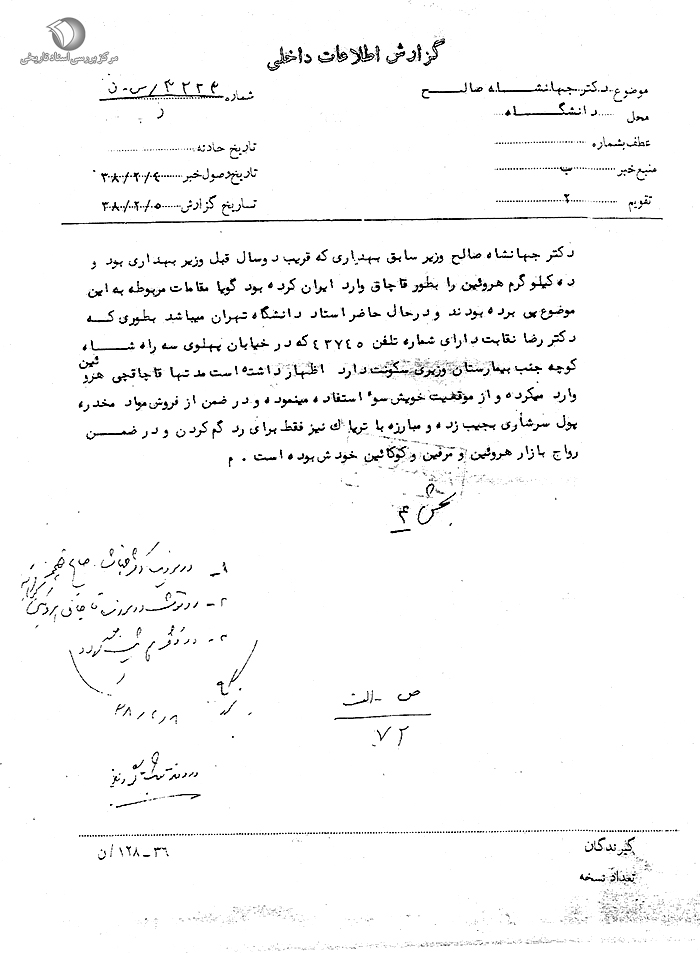 مرکز بررسی اسناد تاریخی
گزارش اطلاعات داخلی
موضوع دکتر جهانشاه صالح
شماره ۳۲۲۴/س-ن
محل دانشگاه
ر
عطف بشماره
تاریخ حادثه
منبع خبر ب
تاریخ وصول خبر ۳۸/۲/۴
تقویم ۲
تاریخ گزارش ۳۸/۲/۵
دکتر جهانشاه صالح وزیر سابق بهداری که قریب دوسال قبل وزیر بهداری بود و
ده کیلو گرم هروئین را بطور قاچاق وارد ایران کرده بود گویا مقامات مربوطه به این
موضوع پی برده بودند و درحال حاضر استاد دانشگاه تهران میباشد بطوری که
دکتر رضا نقابت دارای شماره تلفن ۴۳۷۴۵ که در خیابان پهلوی سه راه شاه
کوچه جنب بیمارستان وزیری سکونت دارد اظهار داشته است مدتها قاچاقچی هروئین
وارد میکرده و از موقعیت خویش سوء استفاده مینموده و در ضمن از فروش مواد مخدره
پول سرشاری بجیب زده و مبارزه با تریاك نیز فقط برای رد گم کردن و در ضمن
رواج بازار هروئین و مرفین و کوکائین خودش بوده است . م
بخش ۴
۱-
۲-
۳-
۳۸/۲/۸
ص - الف
۷۲
گیرندگان
۳۶-۱۲۸/ن
تعداد نسخه